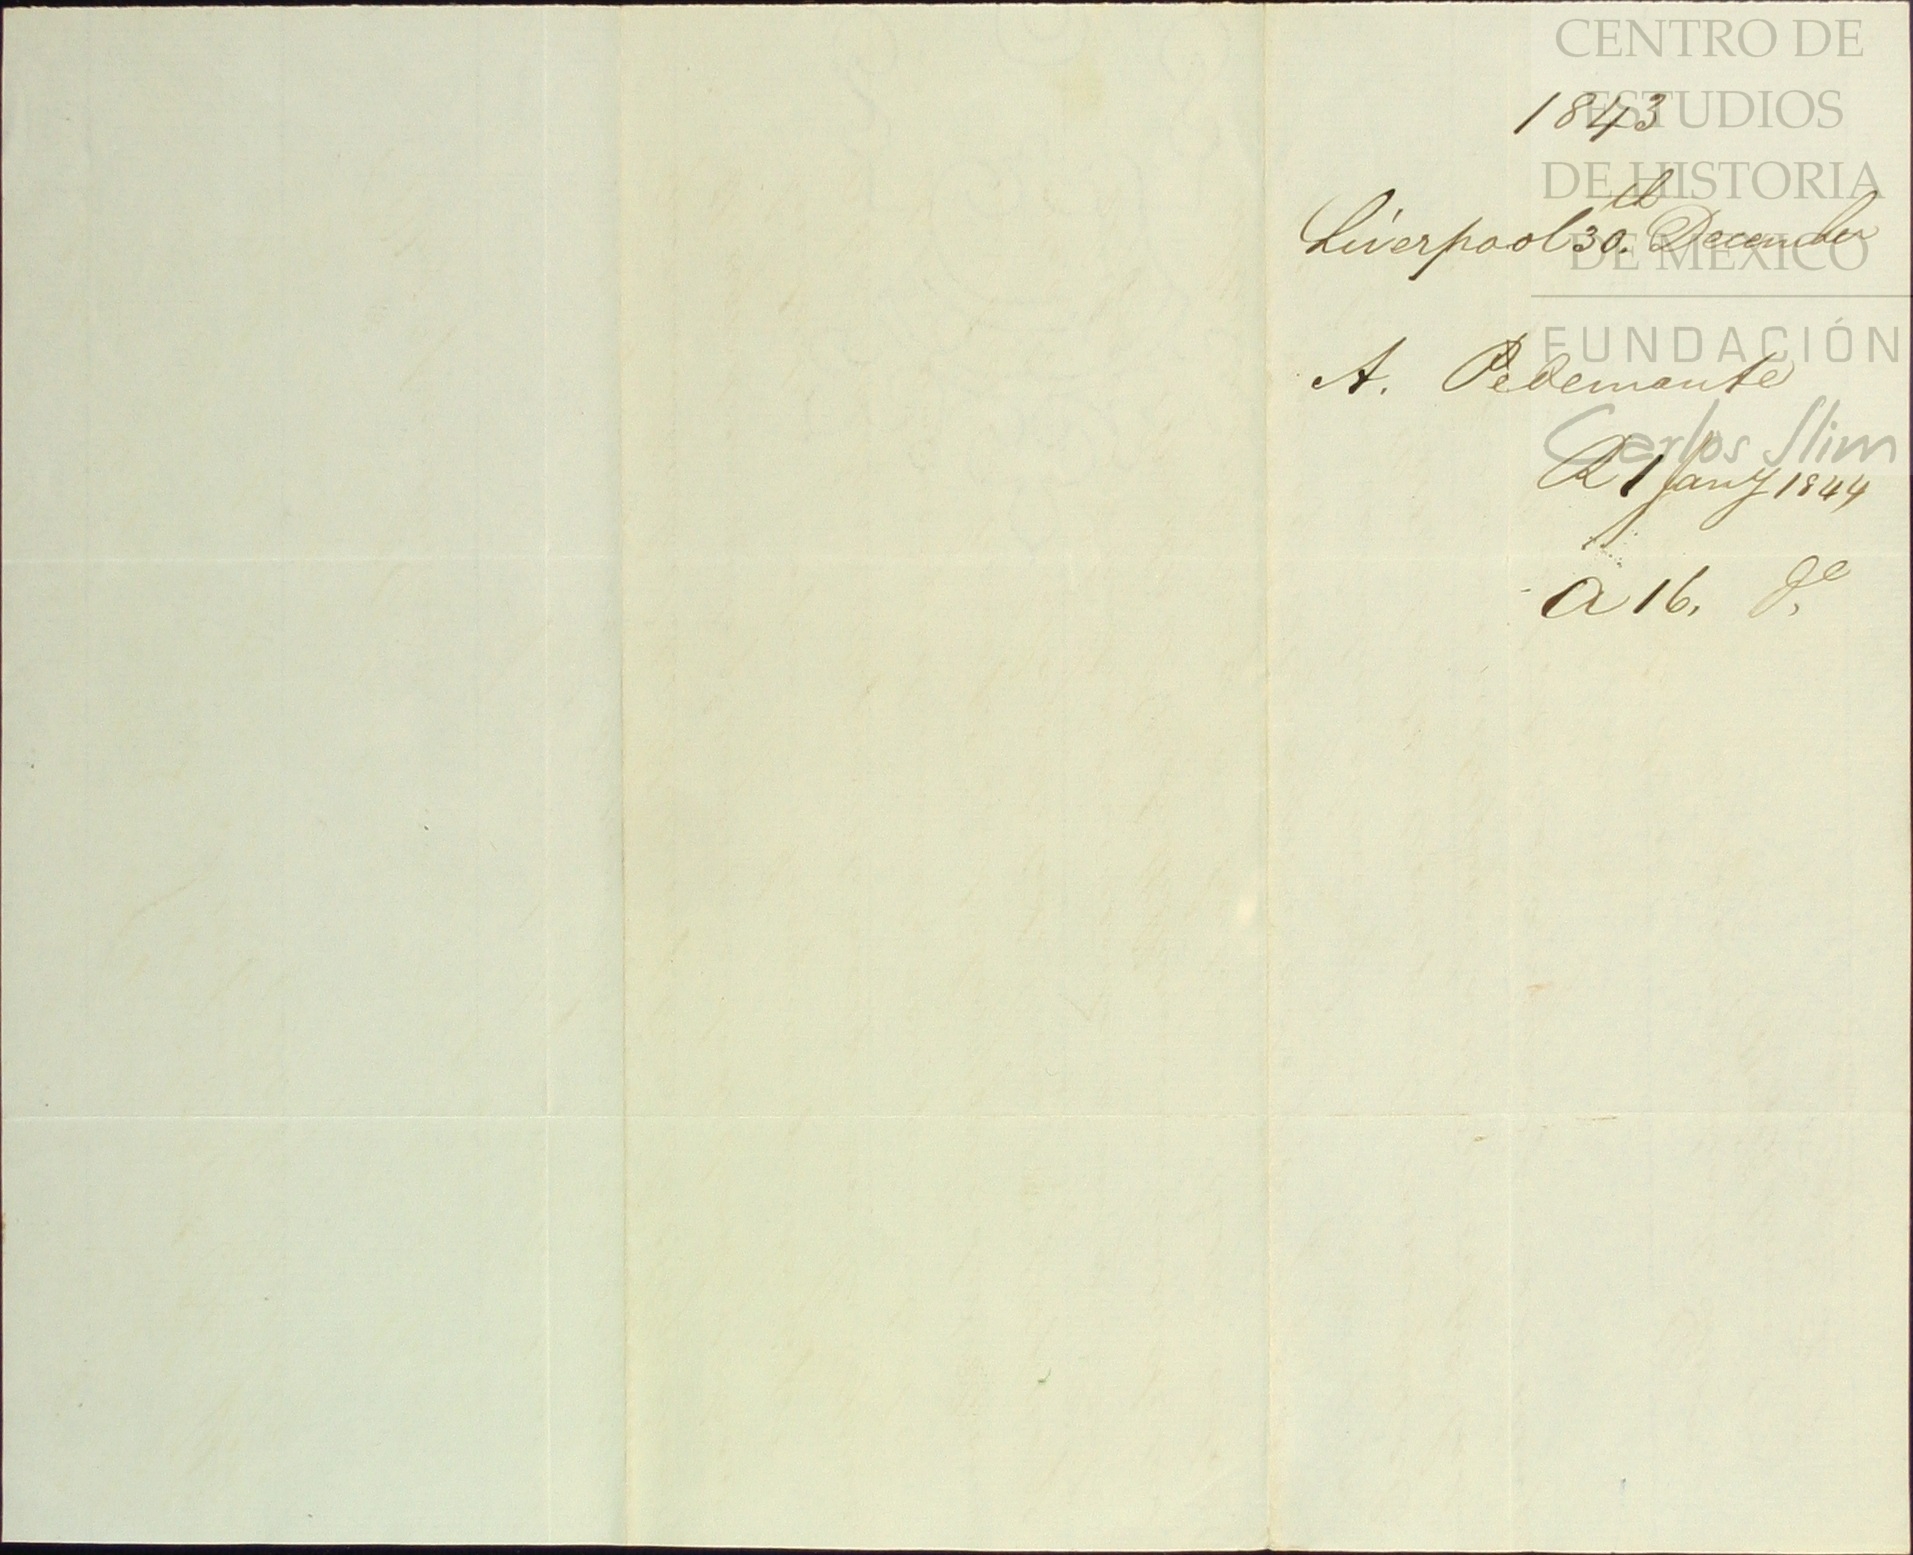 CENTRO DE
ESTUDIOS
DE HISTORIA
DE MÉXICO
FUNDACIÓN
Carlos Slim
1843
Liverpool 30.th December
A. Pedemonte
R 1 Jany 1844
a 16. do.